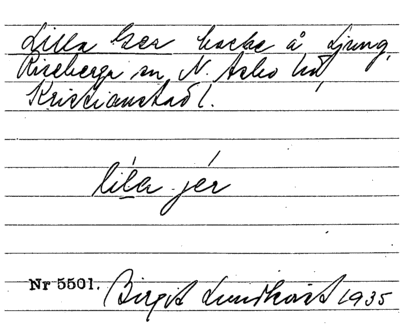 Lilla Ger backe å Ljung,
Riseberga sn N. Åsbo hd,
Kristianstad l.
lila jér
Nr 5501. Birgit Lundkvist 1935